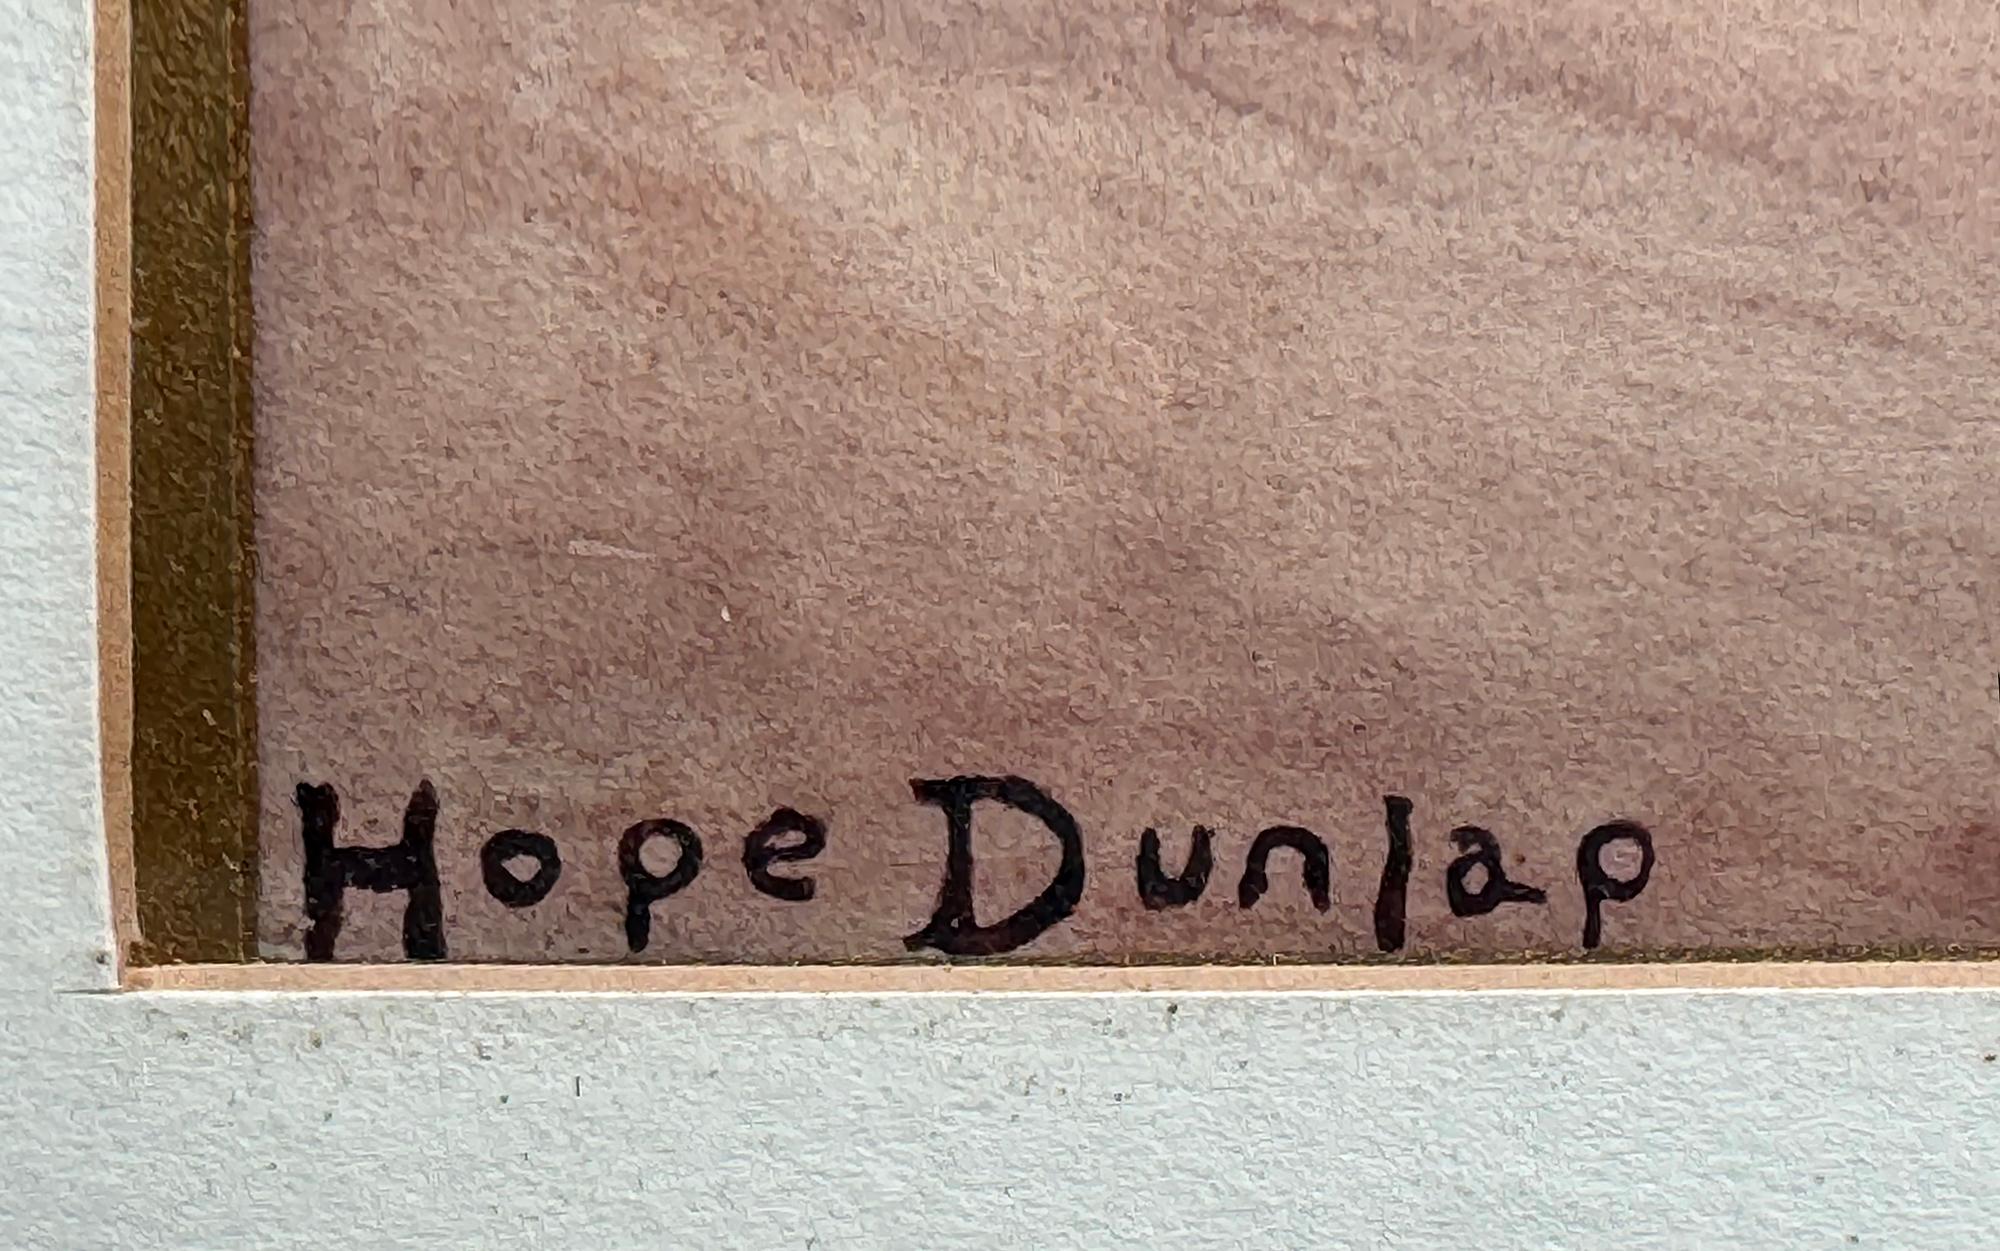 Hope Dunlap